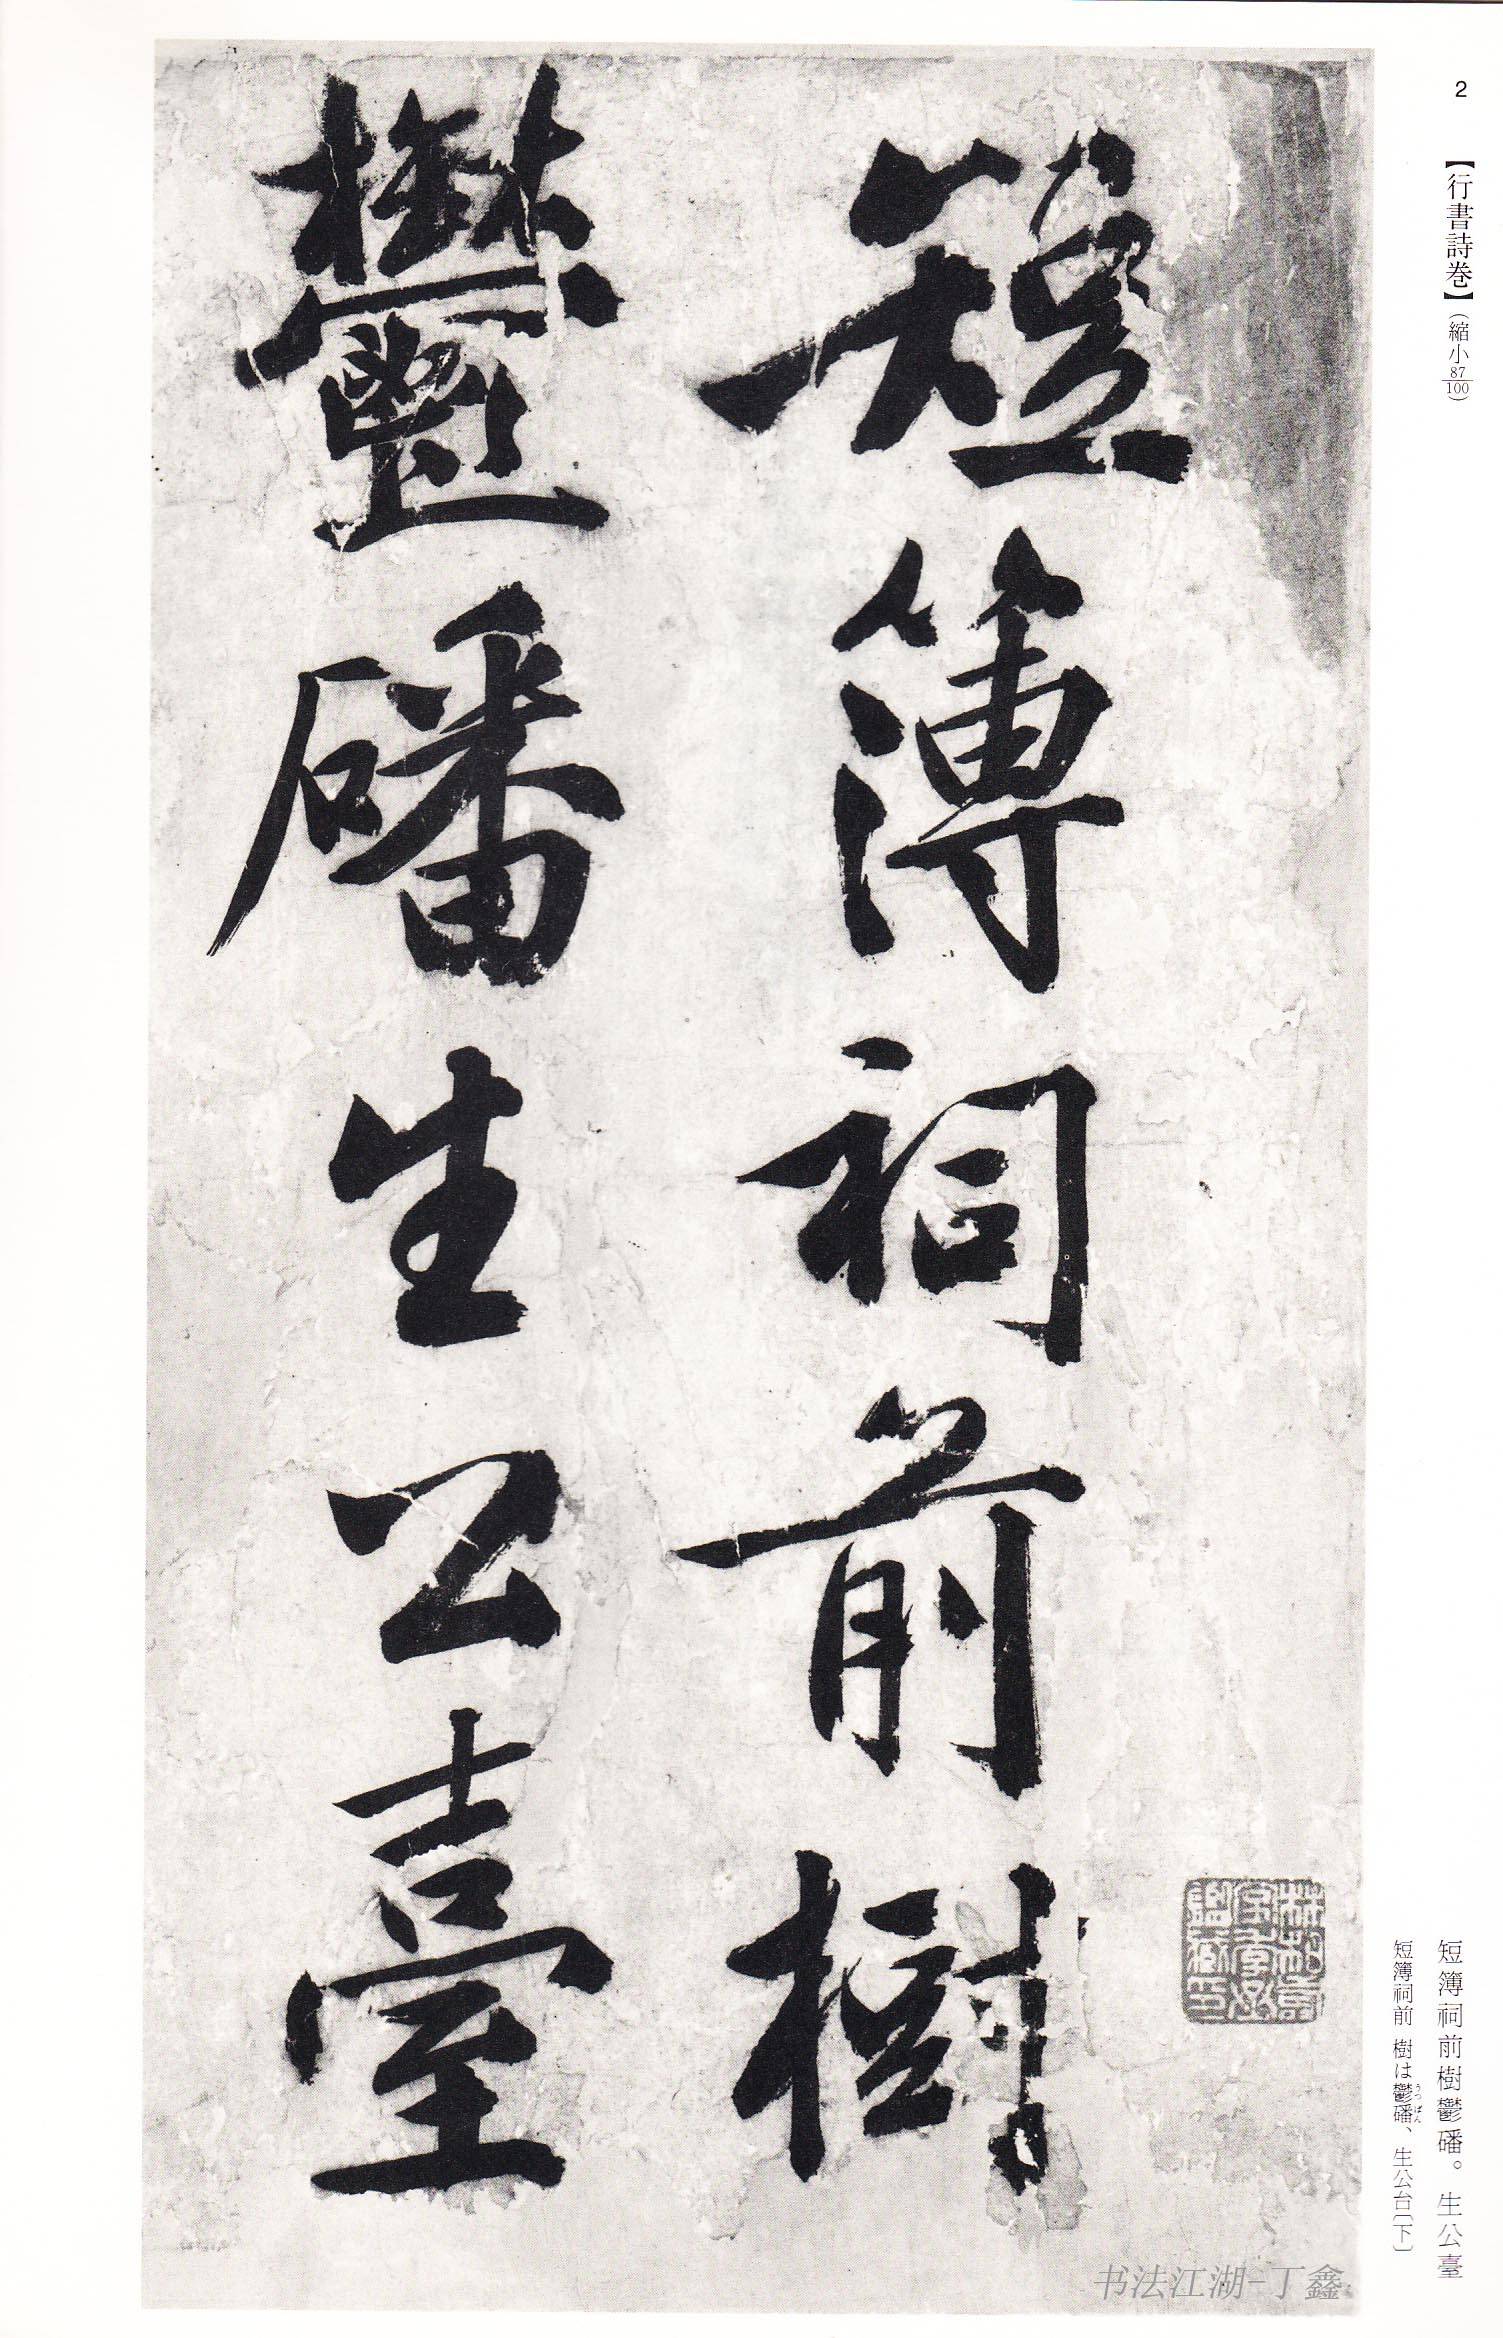 2
【行書詩巻】(縮小87/100)
短簿祠前樹
鬱磻生公臺
短簿祠前樹鬱磻。生公臺
短簿祠前 樹は鬱磻、生公台〔下〕
うつ ばん
书法江湖-丁鑫